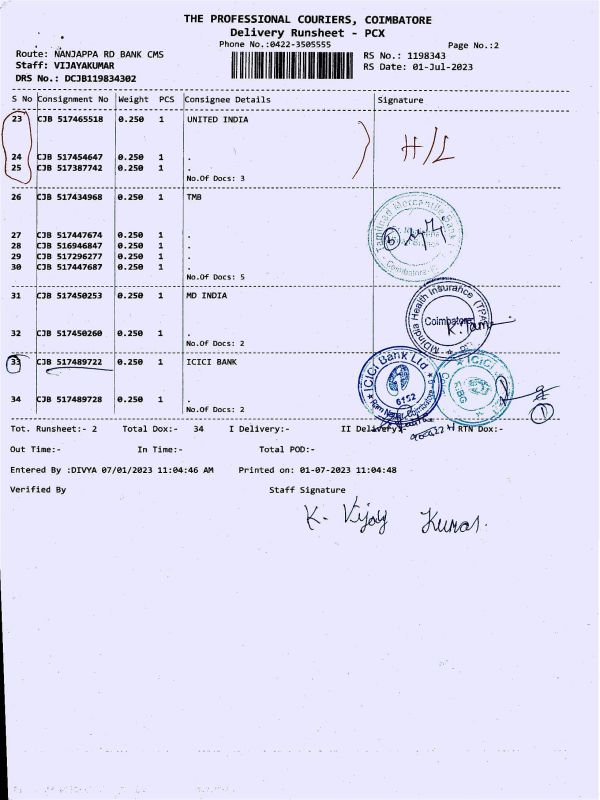 THE PROFESSIONAL COURIERS, COIMBATORE
Delivery Runsheet - PCX
Phone No.:0422-3505555
Page No.:2
Route: NANJAPPA RD BANK CMS
RS No.: 1198343
Staff: VIJAYAKUMAR
RS Date: 01-Jul-2023
DRS No.: DCJB119834302
S No Consignment No Weight PCS Consignee Details Signature
23 CJB 517465518 0.250 1 UNITED INDIA
H/L
24 CJB 517454647 0.250 1 .
25 CJB 517387742 0.250 1 .
No.Of Docs: 3
26 CJB 517434968 0.250 1 TMB
Tamilnad Mercantile Bank
Coimbatore
5
27 CJB 517447674 0.250 1 .
28 CJB 516946847 0.250 1 .
29 CJB 517296277 0.250 1 .
30 CJB 517447687 0.250 1 .
No.Of Docs: 5
31 CJB 517450253 0.250 1 MD INDIA
MDIndia Health Insurance (TPA)
Coimbatore
32 CJB 517450260 0.250 1 .
No.Of Docs: 2
33 CJB 517489722 0.250 1 ICICI BANK
ICICI Bank Ltd
6152
Ram Nagar, Coimbatore
ICICI
RBG
1
34 CJB 517489728 0.250 1 .
No.Of Docs: 2
Tot. Runsheet:- 2 Total Dox:- 34 I Delivery:- II Delivery:- RTN Dox:-
Out Time:- In Time:- Total POD:-
Entered By :DIVYA 07/01/2023 11:04:46 AM Printed on: 01-07-2023 11:04:48
Verified By Staff Signature
K. Vijay Kumar.